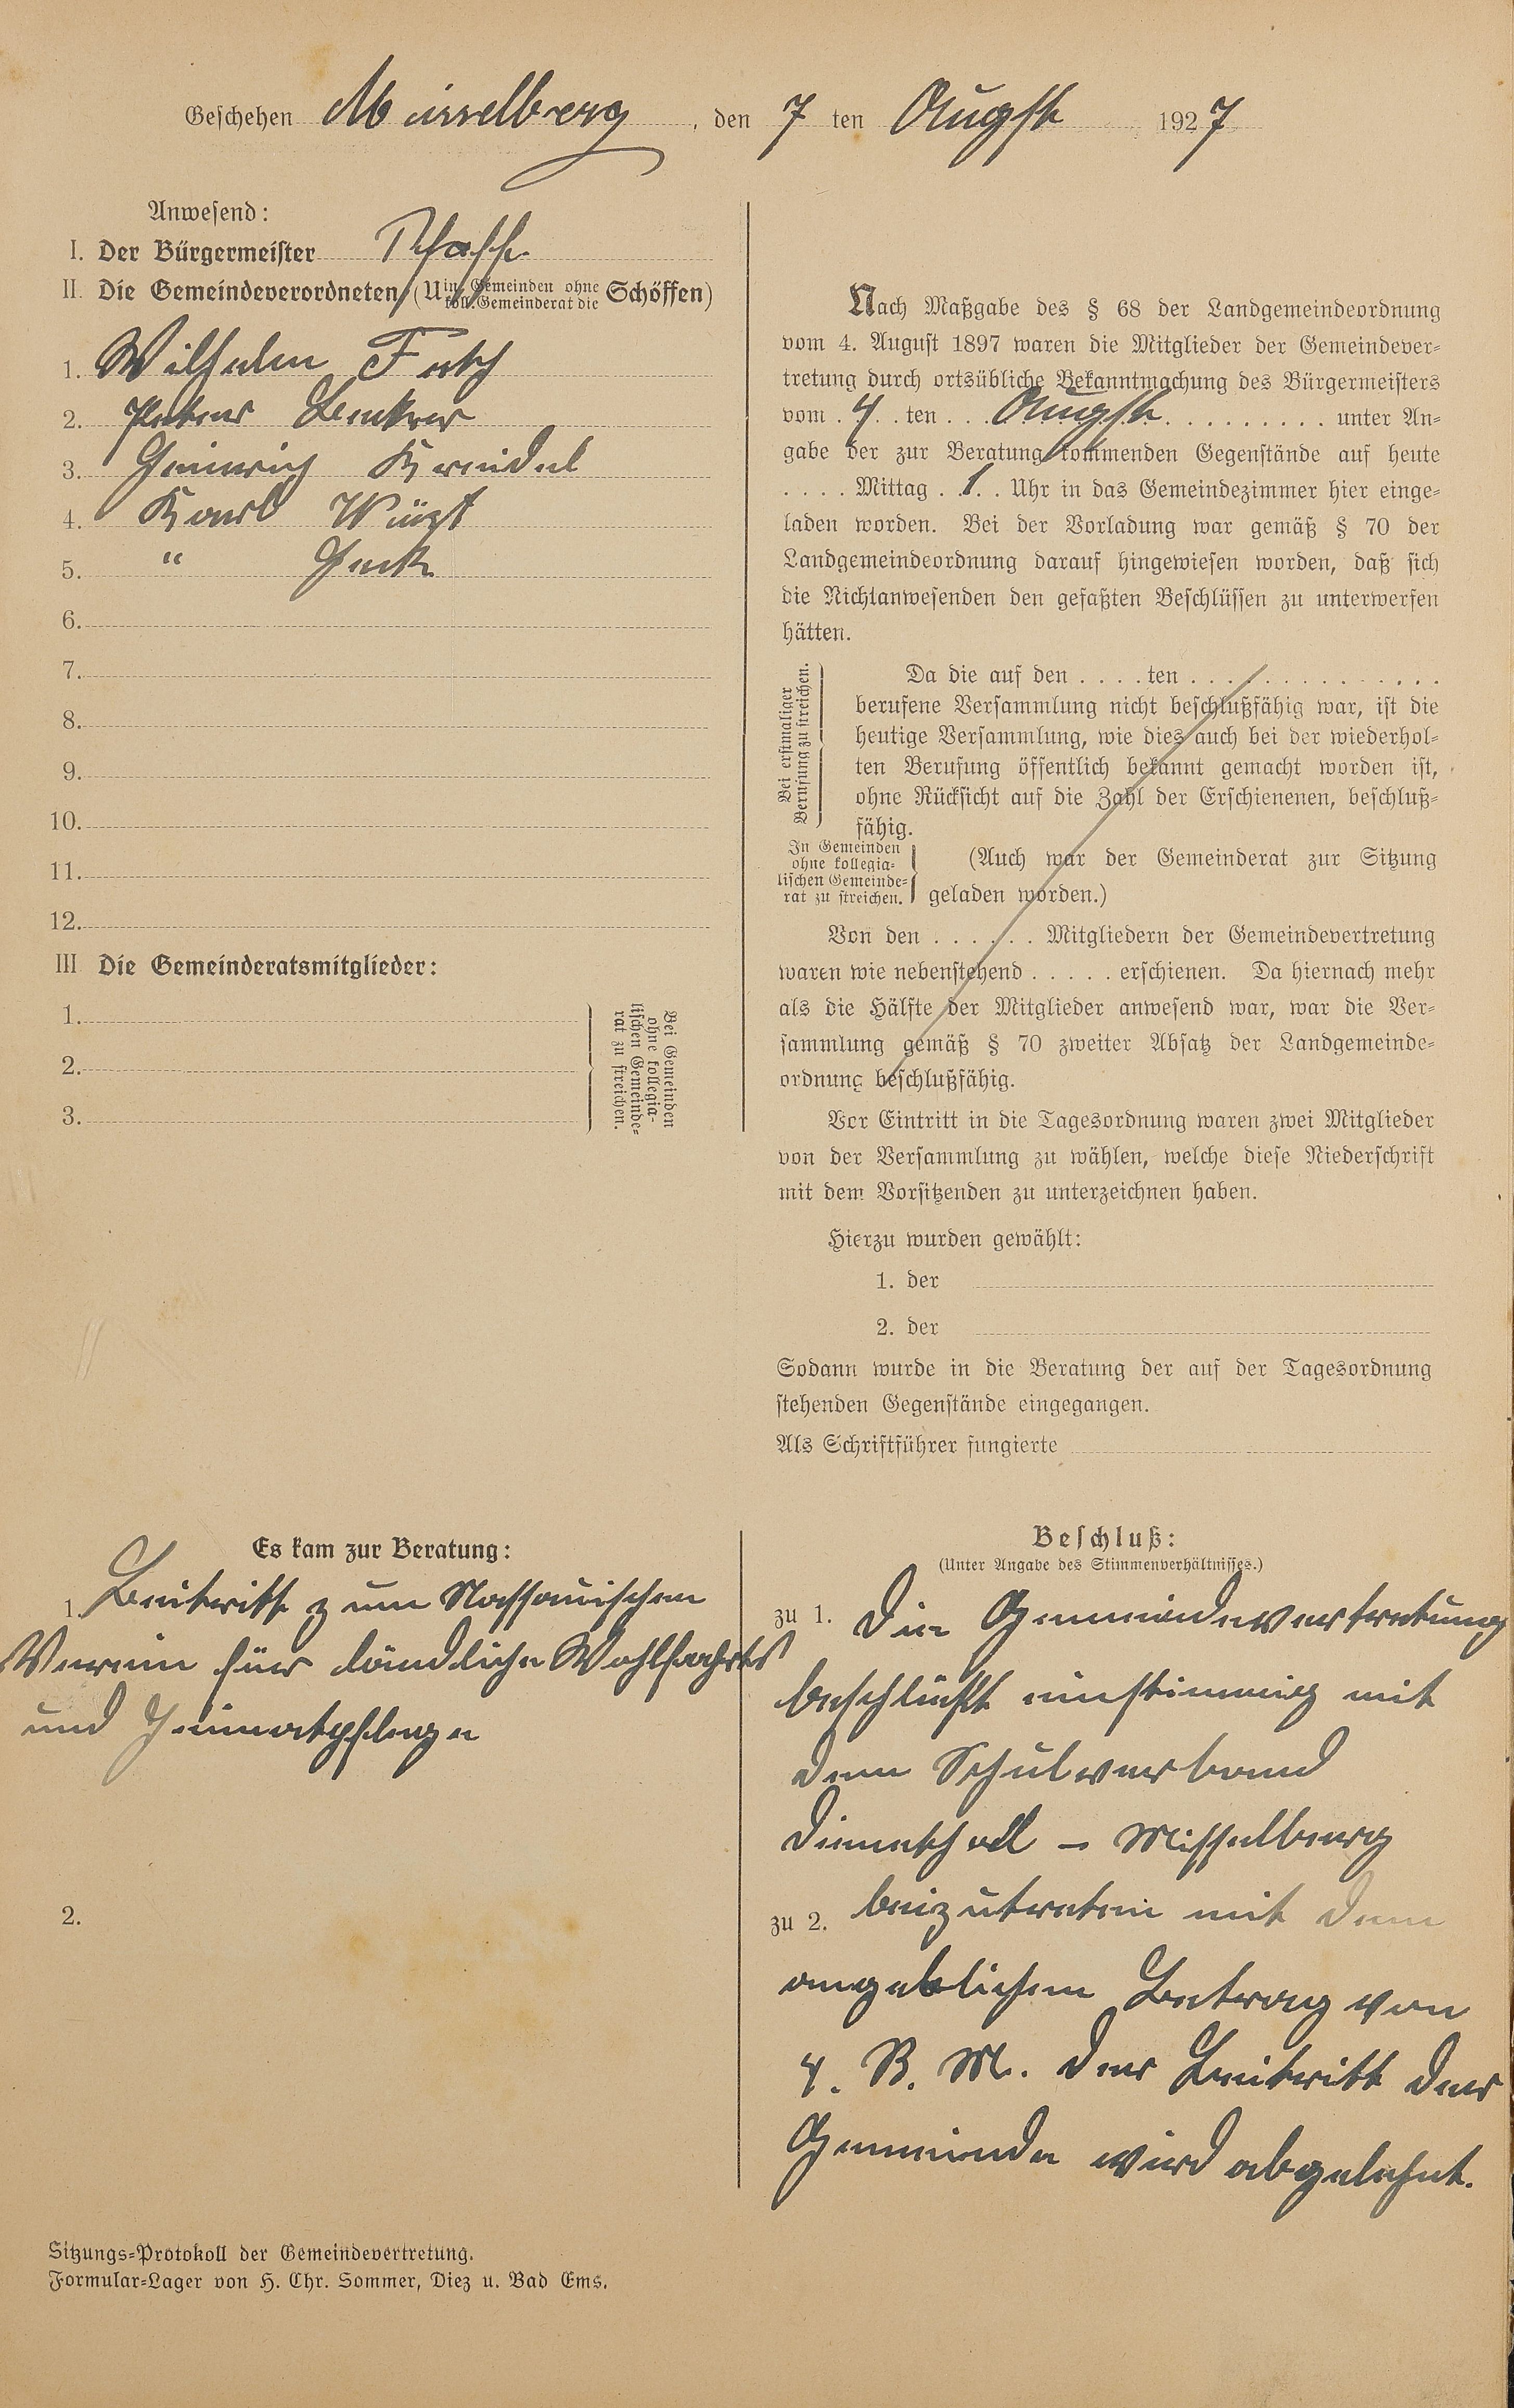 Geschehen Misselberg, den 7 ten Augst 1927
Anwesend:
I. Der Bürgermeister Pfaff
II. Die Gemeindeverordneten (U in Gemeinden ohne koll. Gemeinderat die Schöffen)
1. Wilhelm
2. Peter
3. Heinrich Kreidel
4. Karl
5. "
6.
7.
8.
9.
10.
11.
12.
III Die Gemeinderatsmitglieder:
1.
2.
3.
Bei Gemeinden
ohne kollegia-
lischen Gemeinde-
rat zu streichen.
Nach Maßgabe des § 68 der Landgemeindeordnung
vom 4. August 1897 waren die Mitglieder der Gemeindever-
tretung durch ortsübliche Bekanntmachung des Bürgermeisters
vom 4. ten Augst unter An-
gabe der zur Beratung kommenden Gegenstände auf heute
.... Mittag 1 Uhr in das Gemeindezimmer hier einge-
laden worden. Bei der Vorladung war gemäß § 70 der
Landgemeindeordnung darauf hingewiesen worden, daß sich
die Nichtanwesenden den gefaßten Beschlüssen zu unterwerfen
hätten.
Bei erstmaliger
Berufung zu streichen.
Da die auf den .... ten ..............
berufene Versammlung nicht beschlußfähig war, ist die
heutige Versammlung, wie dies auch bei der wiederhol-
ten Berufung öffentlich bekannt gemacht worden ist,
ohne Rücksicht auf die Zahl der Erschienenen, beschluß-
fähig.
In Gemeinden
ohne kollegia-
lischen Gemeinde-
rat zu streichen.
(Auch war der Gemeinderat zur Sitzung
geladen worden.)
Von den ...... Mitgliedern der Gemeindevertretung
waren wie nebenstehend ..... erschienen. Da hiernach mehr
als die Hälfte der Mitglieder anwesend war, war die Ver-
sammlung gemäß § 70 zweiter Absatz der Landgemeinde-
ordnung beschlußfähig.
Vor Eintritt in die Tagesordnung waren zwei Mitglieder
von der Versammlung zu wählen, welche diese Niederschrift
mit dem Vorsitzenden zu unterzeichnen haben.
Hierzu wurden gewählt:
1. der
2. der
Sodann wurde in die Beratung der auf der Tagesordnung
stehenden Gegenstände eingegangen.
Als Schriftführer fungierte
Es kam zur Beratung:
1. Beitritt zum Nassauischen
Verein für ländliche Wohlfahrts
und Heimatpflege
2.
Beschluß:
(Unter Angabe des Stimmenverhältnisses.)
zu 1. Die Gemeindevertretung
beschließt einstimmig mit
dem Schulverband
Dienethal – Misselberg
zu 2. beizutreten mit dem
angeblichen Betrag von
4. R. M. der Beitritt der
Gemeinde wird abgelehnt.
Sitzungs-Protokoll der Gemeindevertretung.
Formular-Lager von H. Chr. Sommer, Diez u. Bad Ems.